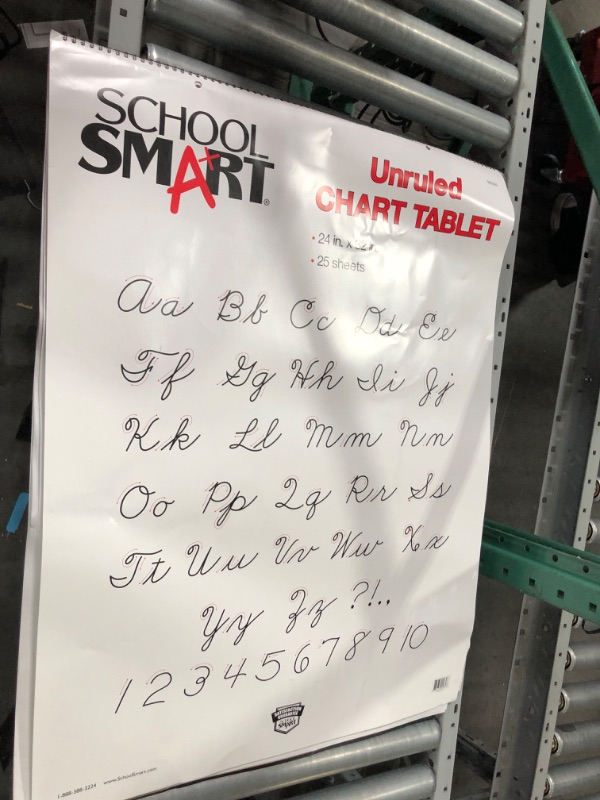 SCHOOL
SMART
Unruled
CHART TABLET
• 24 in. x
• 25 sheets
Aa Bb Cc Dd Ee
Ff Gg Hh Ii Jj
Kk Ll Mm Nn
Oo Pp Qq Rr Ss
Tt Uu Vv Ww Xx
Yy Zz ?!.,
1 2 3 4 5 6 7 8 9 10
www.SchoolSmart.com